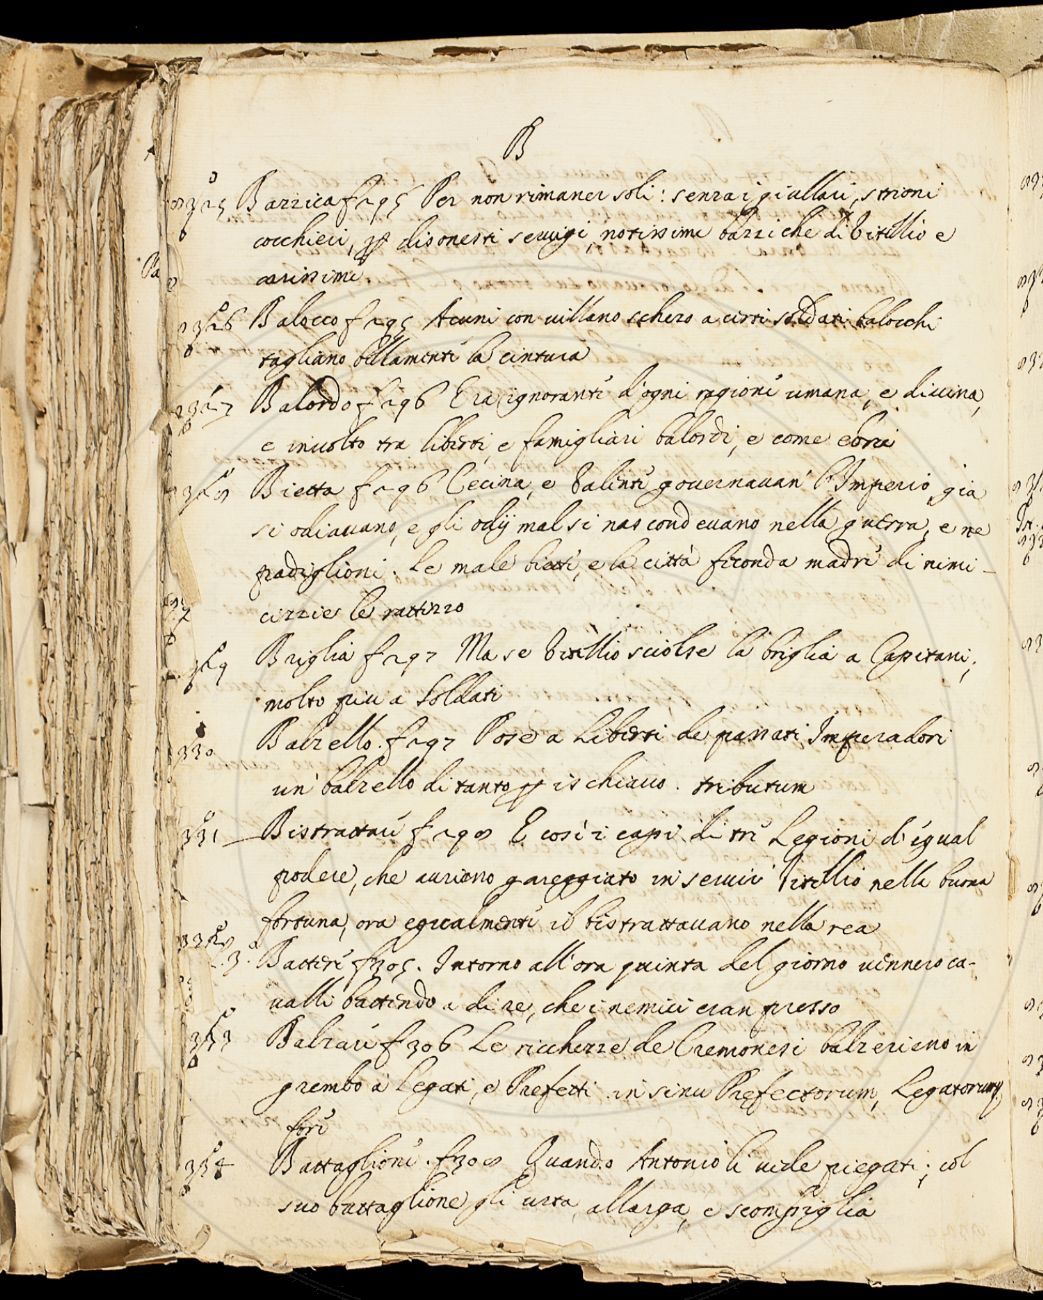 B
325 Bazzica f 295 Per non rimaner soli: senza i giullari, strioni
cocchieri, disonesti servigi, notissime bazziche di Vitellio e
carissime
326 Balocco f 295 Alcuni con villano scherzo a certi soldati balocchi
tagliano bellamente la cintura
327 Balordo f 296 Era ignorante d'ogni ragione umana, e divina,
e involto tra liberti, e famigliari balordi, e come ebrei
328 Bietta f 296 Cecina, e Valente governavan l'Imperio, gia
si odiavano, e gli odij mal si nascondevano nella guerra, e ne
padiglioni. Le male biette, e la città feconda madre di nimi-
cizzie le rattizzo
329 Briglia f 297 Ma se Vitellio sciolse la briglia a Capitani,
molto piu a Soldati
330 Balzello. f 297 Pose a Liberti de passati Imperadori
un balzello di tanto ischiavo. tributum
331 Bistrattare f 298 E così i capi di tre Legioni d'igual
podere, che avrieno gareggiato in servir Vitellio nella buona
fortuna, ora egualmente il bistrattavano nella rea
332 Battere f 305. Intorno all'ora quinta del giorno vennero ca-
valli battendo a dire, che i nemici eran presso
333 Balzare f 306 Le ricchezze de Cremonesi balzerieno in
grembo a Legati, e Prefetti in sinu Prefectorum, Legatorumq
fore
334 Battaglione. f 308 Quando Antonio li vide piegati, col
suo battaglione gli urta, allarga, e scompiglia